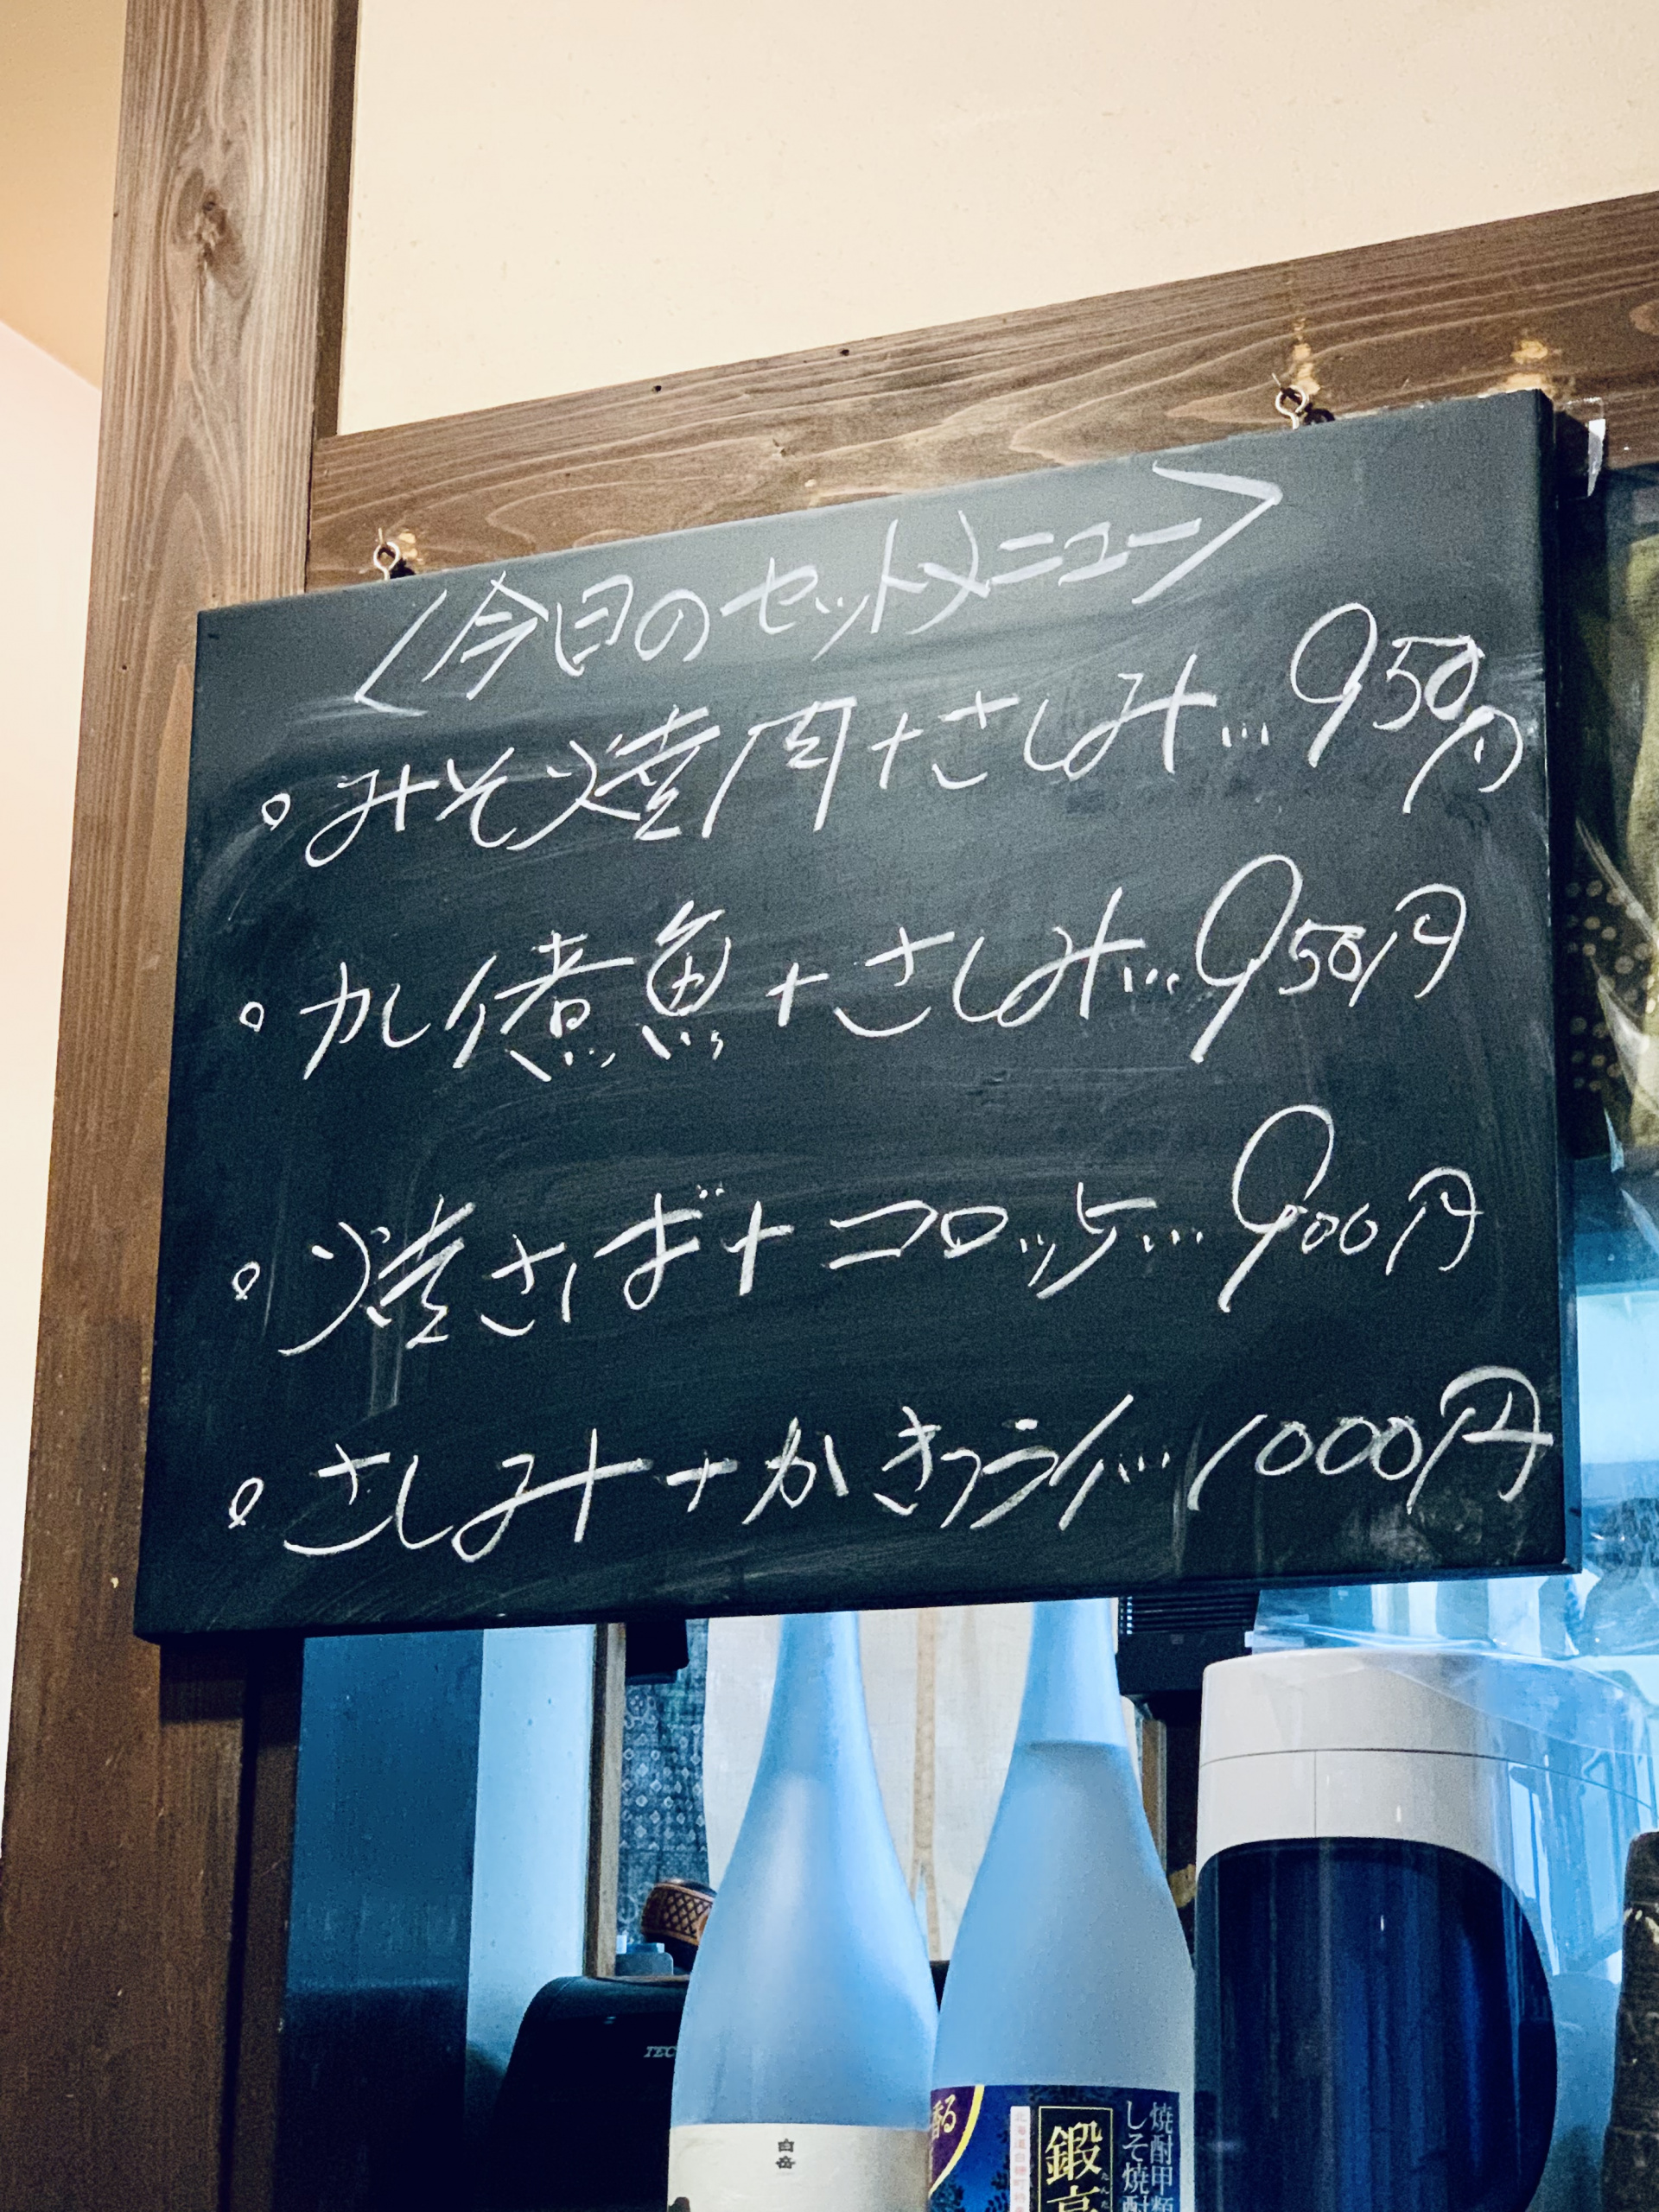 <今日のセットメニュー>
。みそ焼肉+さしみ…950円
。カレイ煮魚+さしみ…950円
。焼さば+コロッケ…900円
。さしみ+かきフライ…1000円
TEC
白岳
香る
鍛高
たんた
焼酎甲類
しそ焼酎